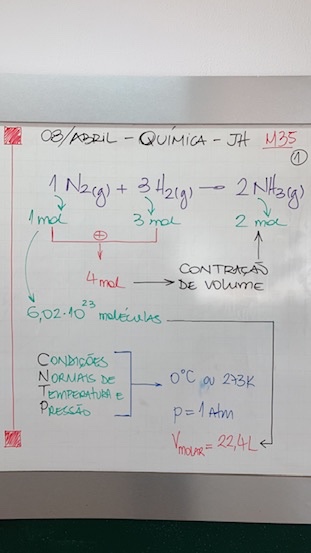 08/ABRIL - QUÍMICA - JH M35
1
1 N2(g) + 3 H2(g) → 2 NH3(g)
1 mol 3 mol 2 mol
+
4 mol → CONTRAÇÃO DE VOLUME
6,02·10^23 MOLÉCULAS
CONDIÇÕES
NORMAIS DE
TEMPERATURA E
PRESSÃO
0°C ou 273K
p = 1 Atm
VMOLAR = 22,4L